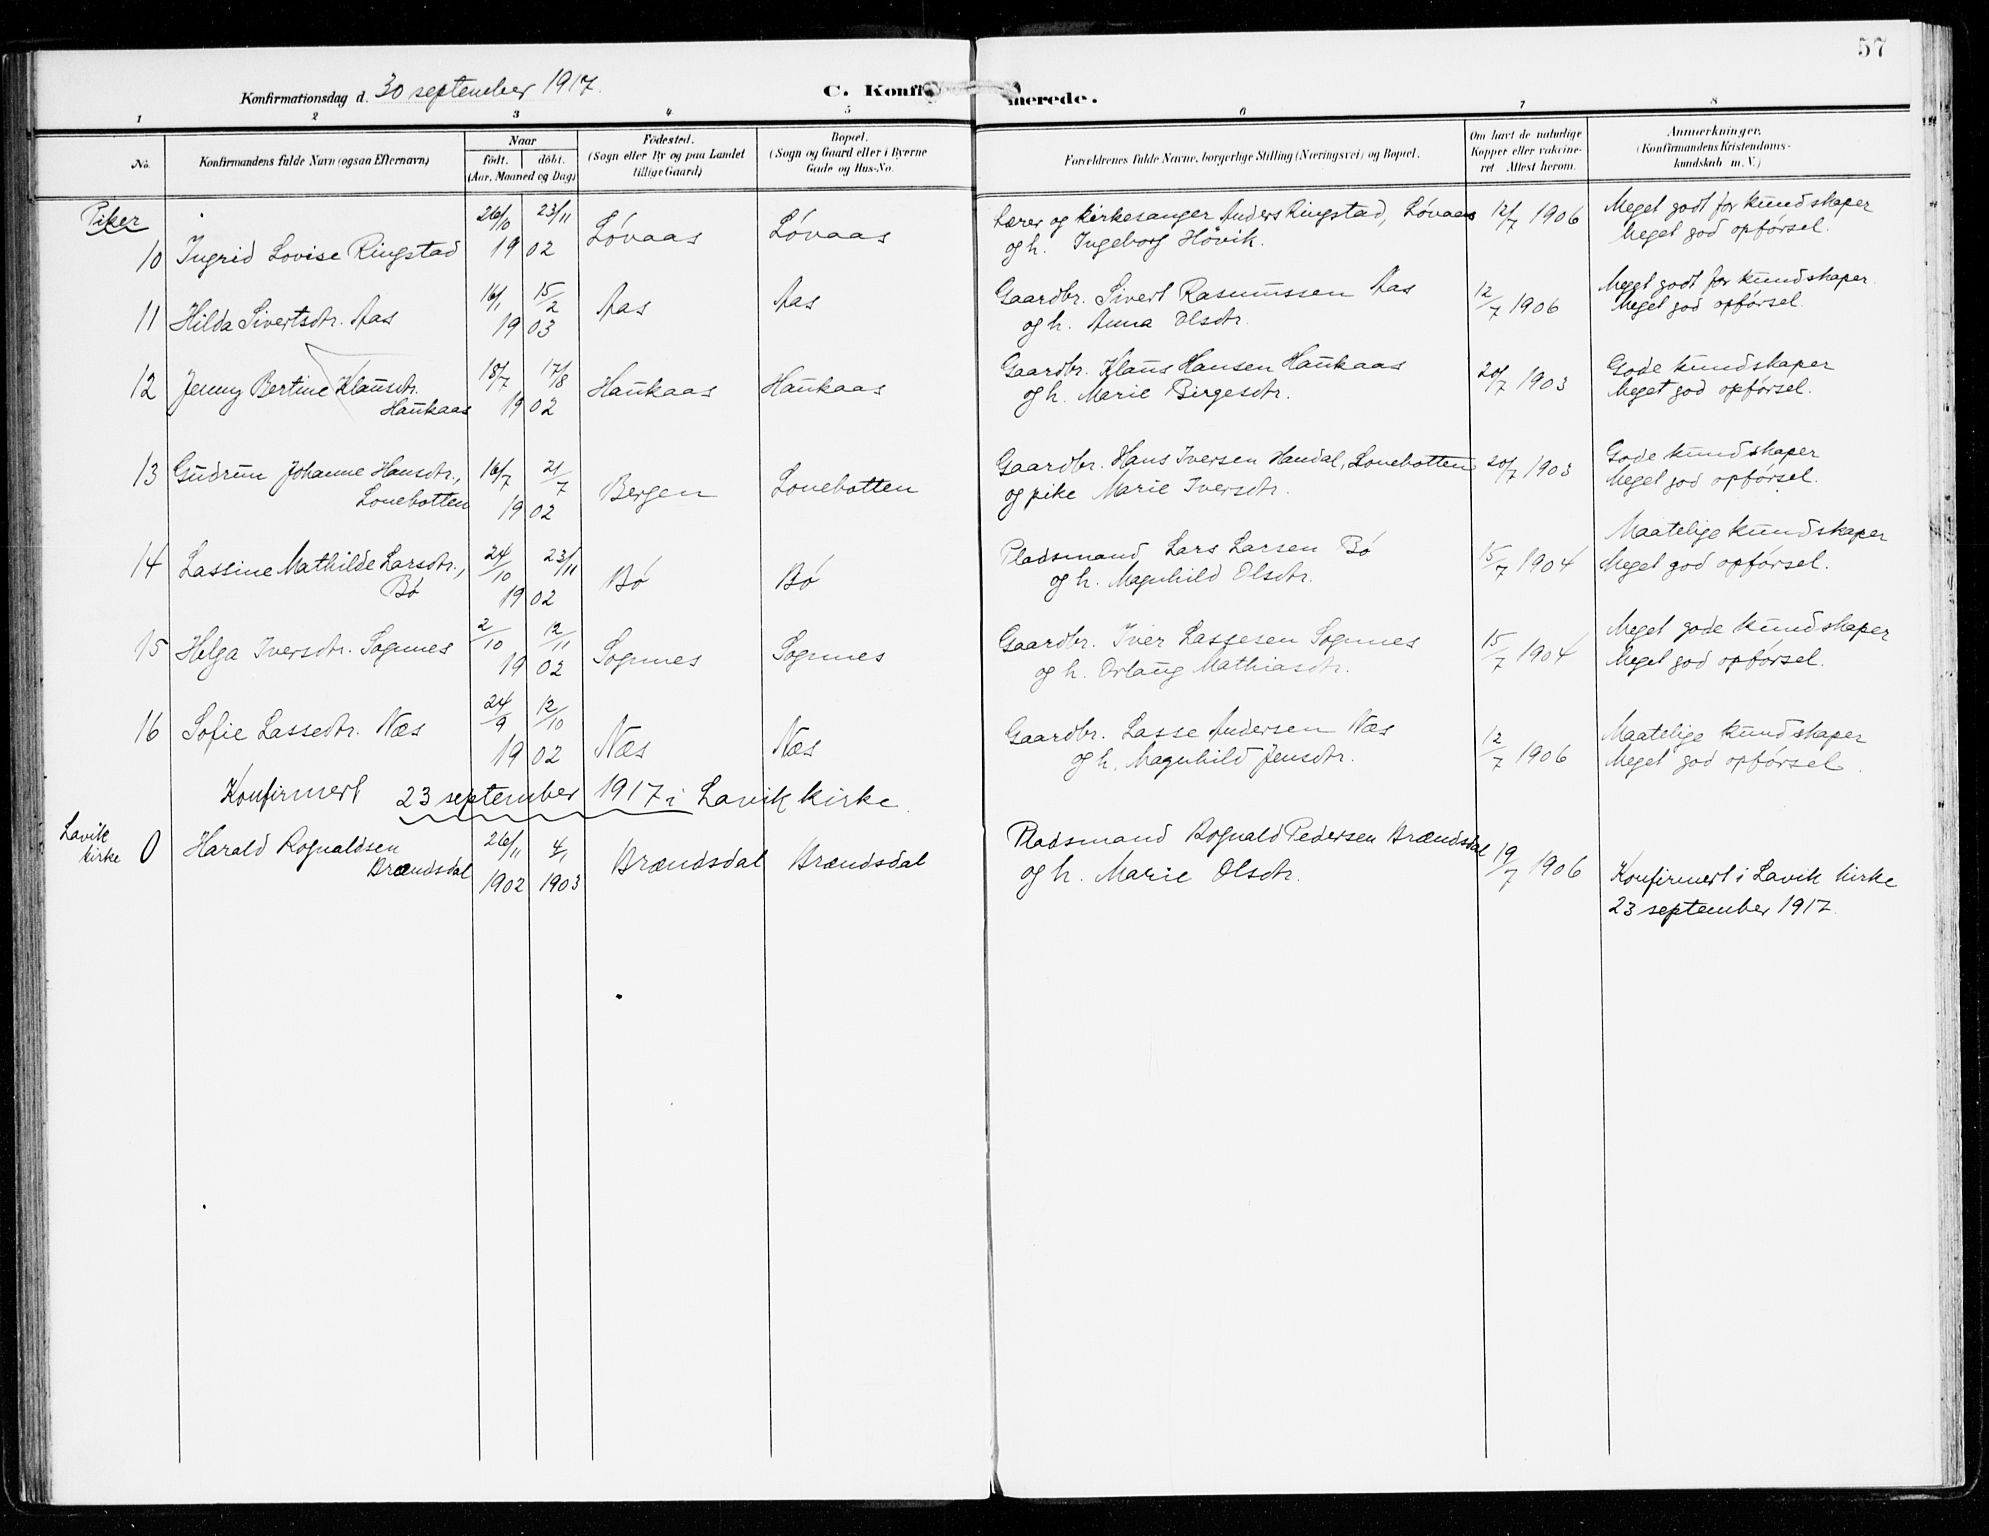 57
Konfirmationsdag d. 30 september 1917.
C. Konfirmerede.
1 2 3 4 5 6 7 8
No. Konfirmandens fulde Navn (ogsaa Efternavn) Naar født. døbt. (Aar, Maaned og Dag) Fødested. (Sogn eller By og paa Landet tillige Gaard) Bopæl. (Sogn og Gaard eller i Byerne Gade og Hus-No. Forældrenes fulde Navne, borgerlige Stilling (Næringsvei) og Bopæl. Om havt de naturlige Kopper eller vaccineret Attest herom. Anmærkninger. (Konfirmandens Kristendomskundskab m. V.)
Piker
26/10 23/11 Løvaas Løvaas Lærer og kirkesanger Anders Ringstad, Løvaas 12/7 1906 Meget godt for kundskaper
10 Ingrid Lovise Ringstad 19 02 og h. Ingeborg Høvik. Meget god opførsel.
16/1 15/2 Aas Aas Gaardbr. Sivert Rasmussen Aas 12/7 1906 Meget godt for kundskaper.
11 Hilda Sivertsdtr. Aas 19 03 og h. Anna Olsdtr. Meget god opførsel.
12 Jenny Bertine Klausdtr. 18/7 17/8 Haukaas Haukaas Gaardbr. Klaus Hansen Haukaas 20/7 1903 Gode kundskaper
Haukaas 19 02 og h. Marie Birgesdtr. Meget god opførsel.
13 Gudrun Johanne Hansdtr., 16/7 21/7 Bergen Lonebotten Gaardbr. Hans Iversen Handal, Lonebotten 20/7 1903 Gode kundskaper
Lonebotten 19 02 og pike Marie Iversdtr. Meget god opførsel.
14 Lassine Mathilde Larsdtr., 24/10 23/11 Bø Bø Pladsmand Lars Larsen Bø 15/7 1904 Maatelige kundskaper
Bø 19 02 og h. Magnhild Olsdtr. Meget god opførsel.
15 Helga Iversdtr. Sognnes 2/10 12/11 Sognnes Sognnes Gaardbr. Iver Lassesen Sognnes 15/7 1904 Meget gode kundskaper
19 02 og h. Orlaug Mathiasdtr. Meget god opførsel.
16 Sofie Lassedtr. Næs 24/9 12/10 Næs Næs Gaardbr. Lasse Andersen Næs 12/7 1906 Maatelige kundskaper
19 02 og h. Magnhild Jensdtr. Meget god opførsel.
Konfirmert 23 september 1917 i Lavik kirke.
Lavik kirke 0 Harald Rognaldsen 26/11 4/1 Brændsdal Brændsdal Pladsmand Rognald Pedersen Brændsdal 19/7 1906
Brændsdal 1902 1903 og h. Marie Olsdtr. Konfirmert i Lavik kirke
23 september 1917.